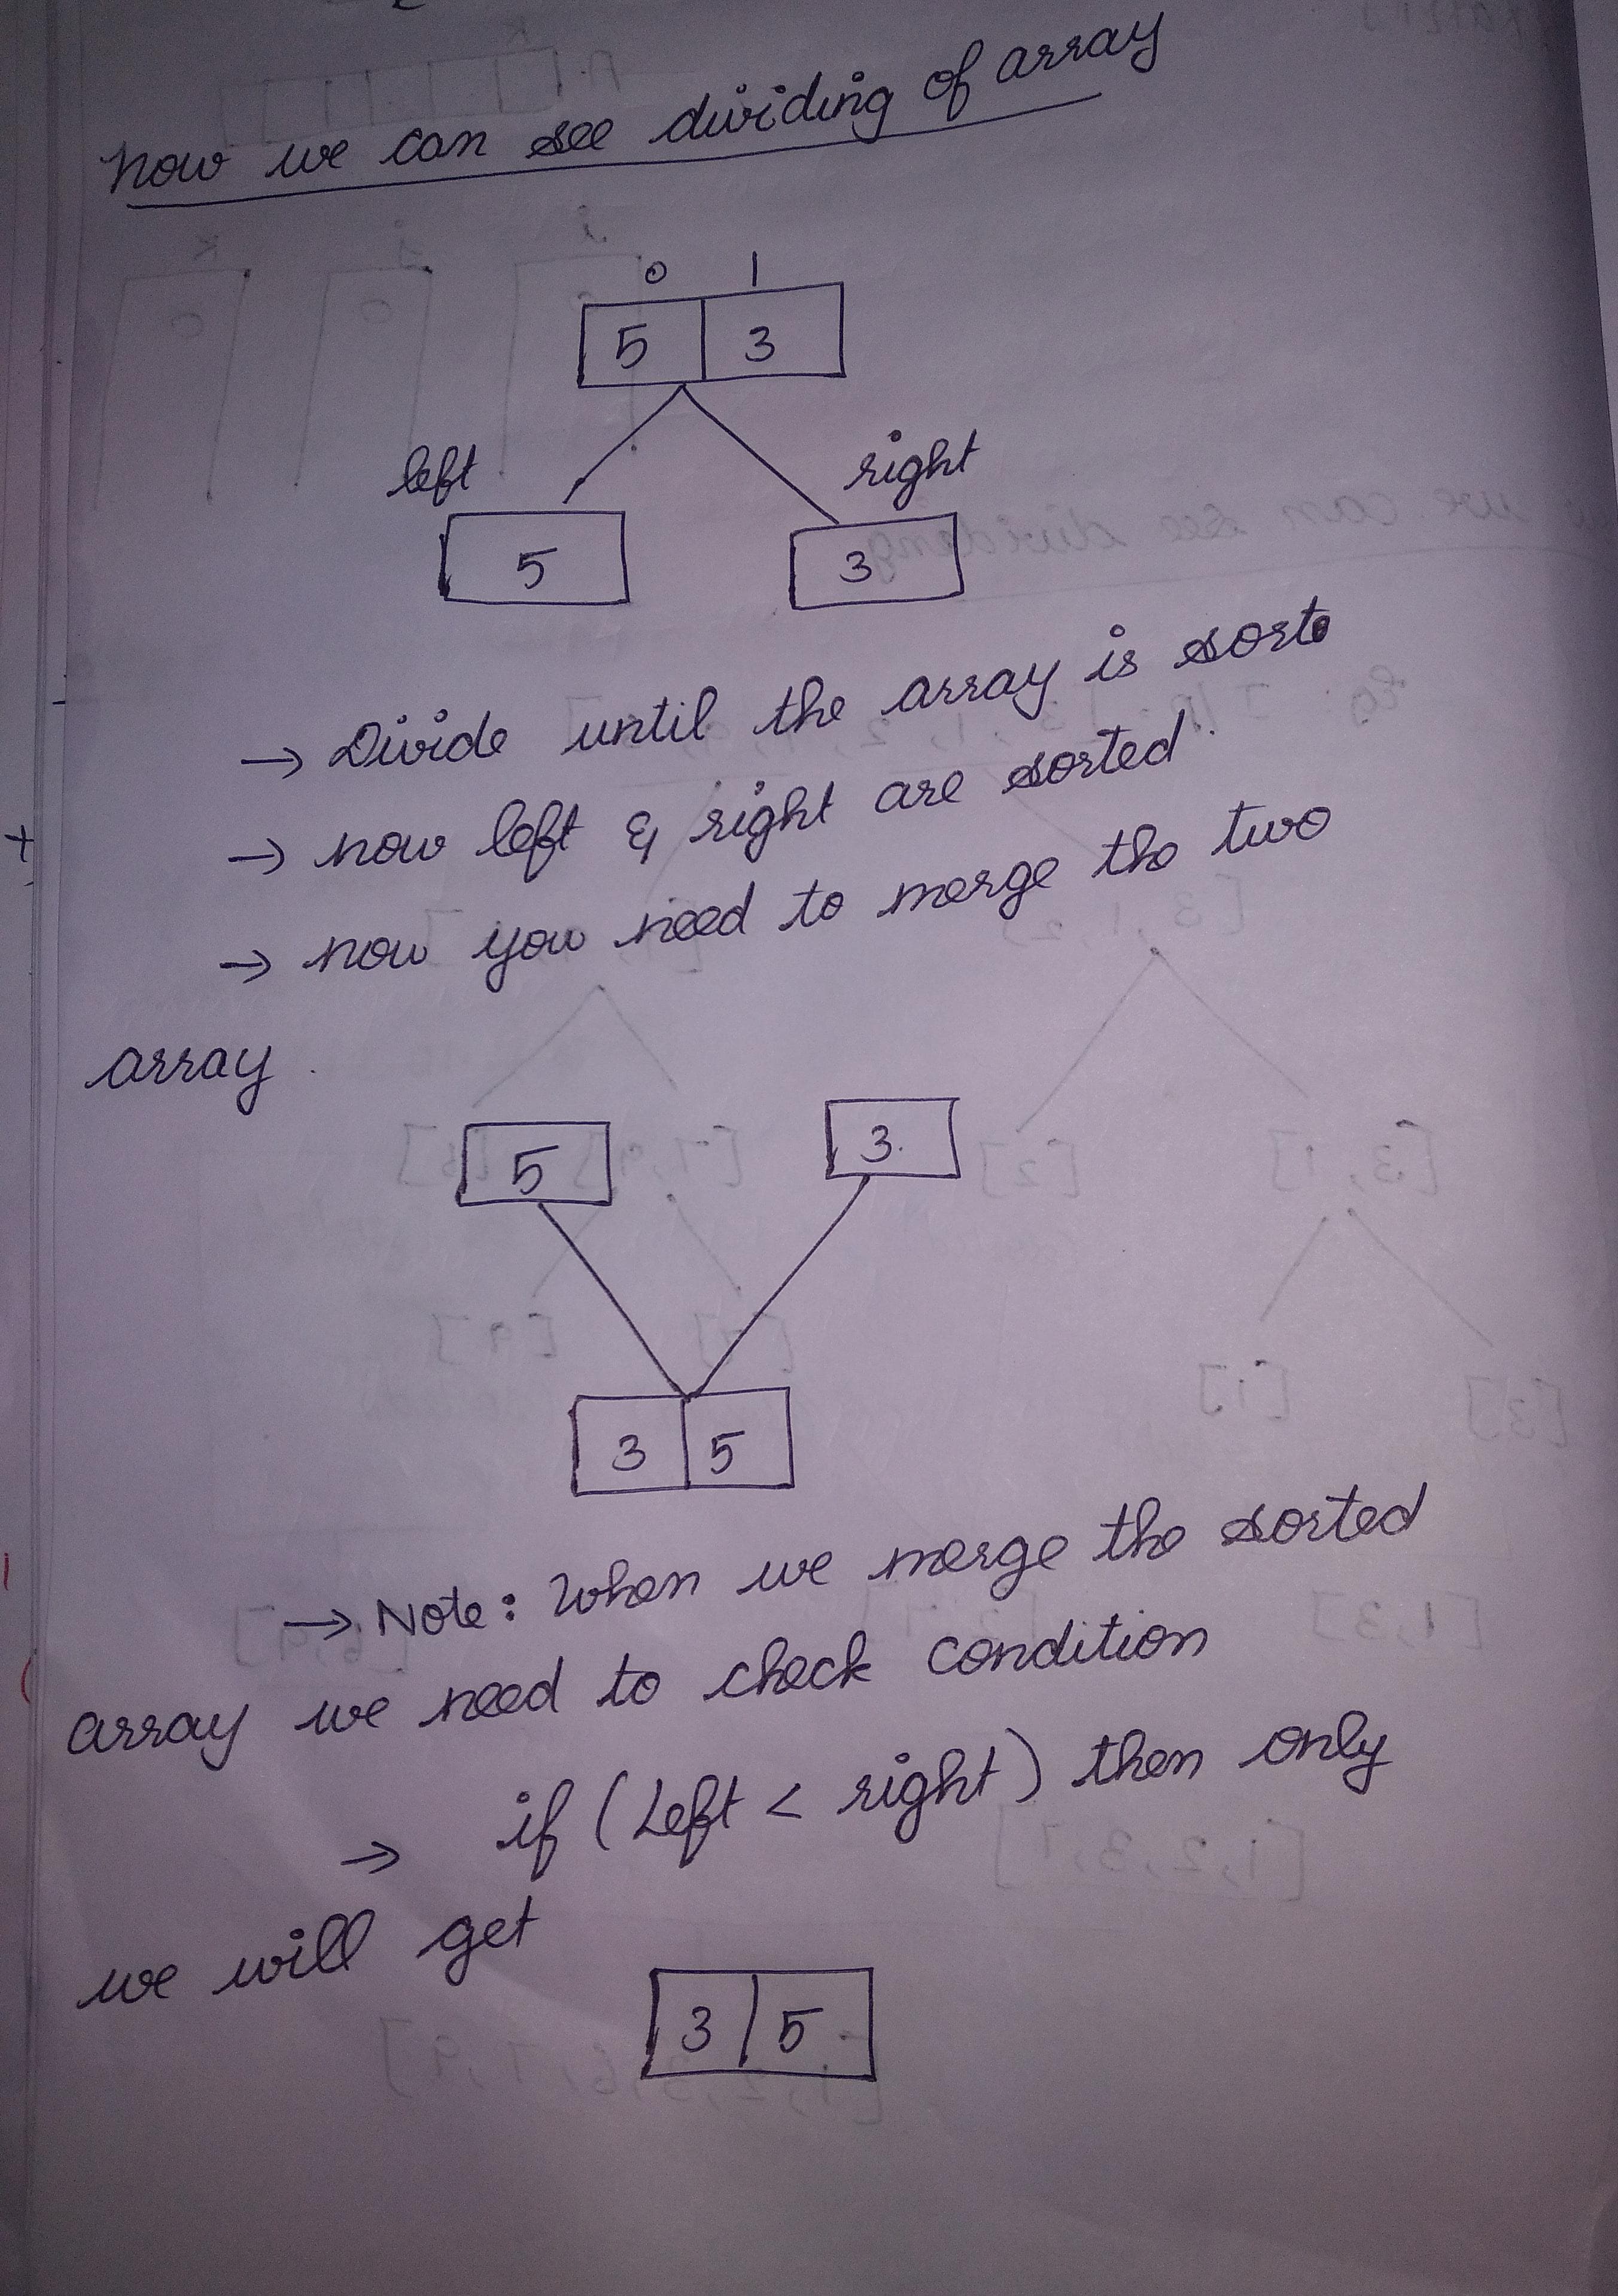 now we can see dividing of array
0 1
5 3
left right
5 3
→ Divide until the array is sort
→ now left & right are sorted.
→ now you need to merge the two
array.
5 3.
3 5
→ Note: When we merge the sorted
array we need to check condition
→ if (Left < right) then only
we will get
3 5